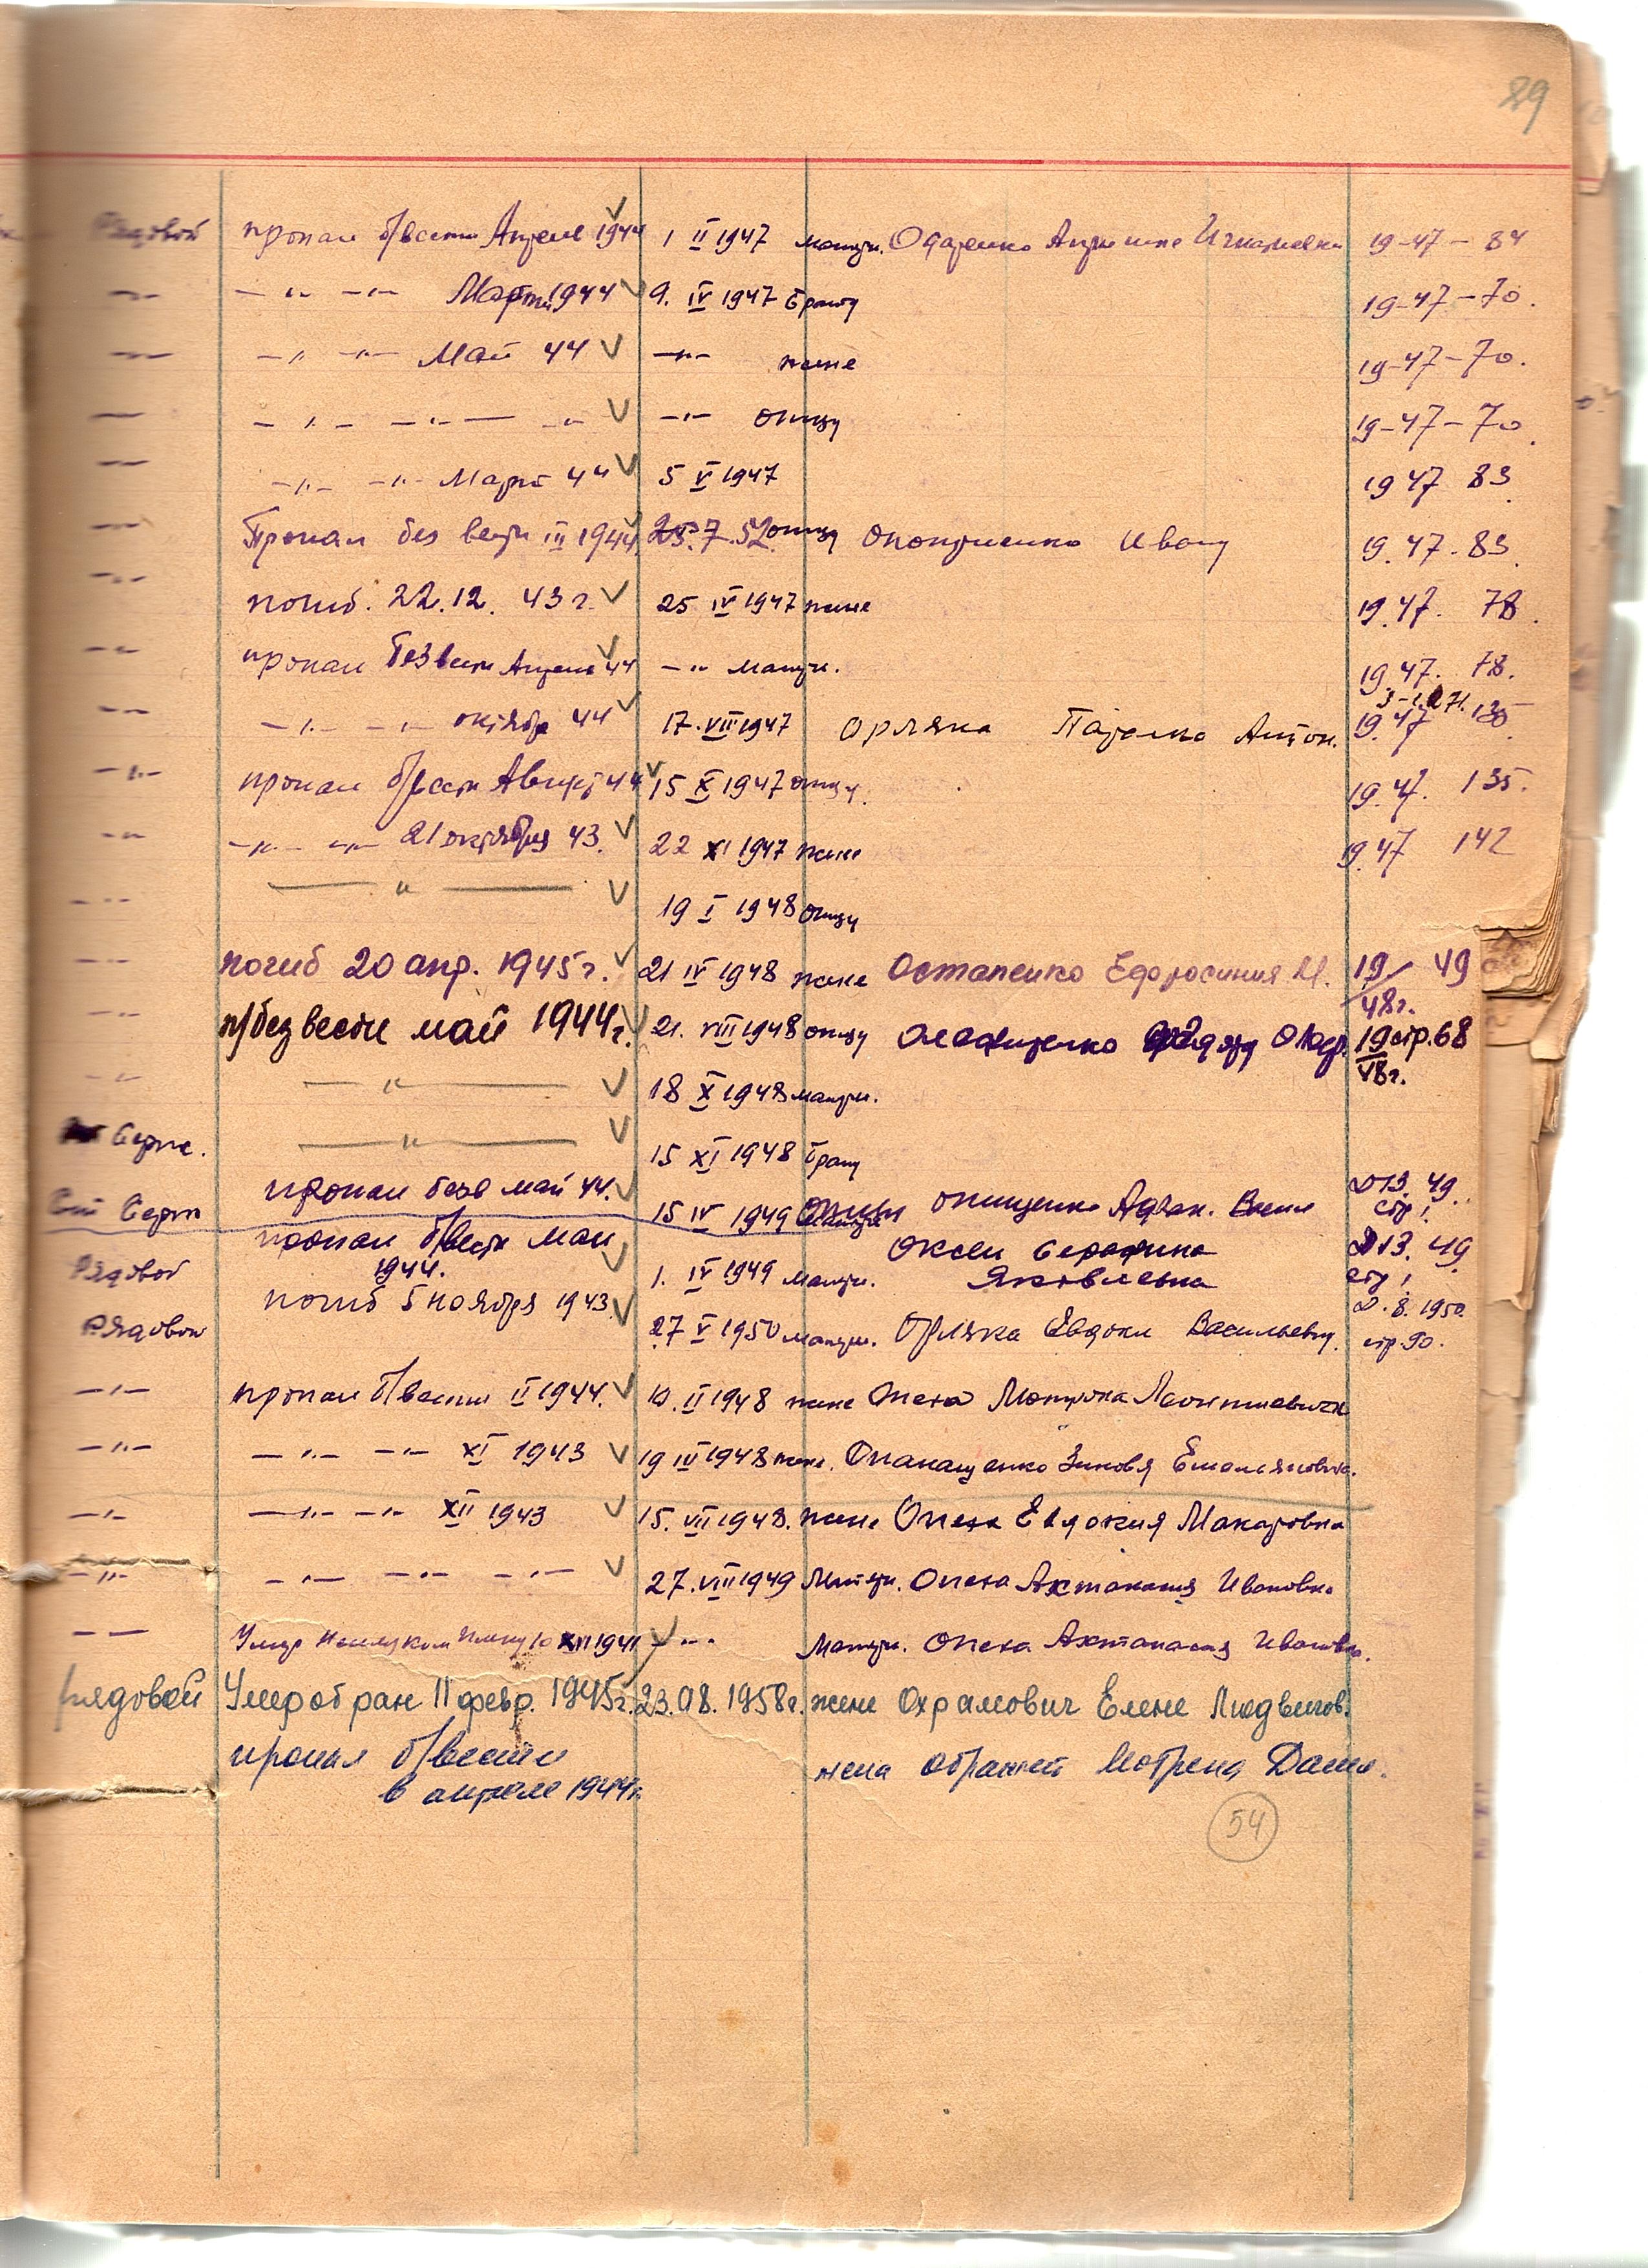 89
Рядовой пропал б/вести Апреле 1944 1 II 1947 матери. Одаренко Игнатьевн 19-47-84
-"- -"- -"- Марте 1944 9. IV 1947 Брату 19-47-70.
-"- -"- -"- Май 44 -"- жене 19-47-70.
-"- -"- -"- -"- -"- отцу 19-47-70.
-"- -"- -"- Март 44 5 V 1947 19 47 83
-"- Пропал без вести III 1944 25.7.52 отцу Опоприенко Ивану 19.47-83.
-"- погиб. 22.12. 43 г. 25 IV 1947 жене 19.47. 78.
-"- пропал без вести Апреле 44 -"- матери. 19.47. 78.
-"- -"- -"- октябре 44 17.VII 1947 Орляка Антон. 19.47
-"- пропал б/вести Август 44 15 X 1947 отцу. 19.47. 135.
-"- -"- -"- 21 октября 43. 22 XI 1947 жене 19.47 142
-"- -"- 19 I 1948 отцу
-"- погиб 20 апр. 1945 г. 21 IV 1948 жене Остапенко Ефросиния М. 19/48г. 49
-"- п/без вести май 1944 г. 21. VIII 1948 отцу 19 стр. 68
VIII 48г.
-"- -"- 18 X 1948 матери.
Серж. -"- 15 XI 1948 Брату
Ст Серж пропал безв май 44. 15 IV 1949 Онищенко Д 13. 49.
стр 1.
Рядовой пропал б/вести май 1944. 1. IV 1949 матери. Серафима Яковлевна Д 13. 49.
стр 1
Рядовой погиб 5 ноября 1943 27 V 1950 матери. Орляка Евдоки Васильевну. Д. 8. 1950.
стр. 90.
-"- пропал б/вести II 1944. 10. II 1948 жене Опега Мотрона Леонтиевича
-"- -"- -"- XI 1943 19 IV 1948 жене. Опанащенко Зиновя Емельяновна.
-"- -"- -"- XII 1943 15. VII 1948. жене Опега Евдокия Макаровна
-"- -"- -"- -"- 27.VIII 1949 Матери. Опега Ивановна
-"- Умер XII 1941 -"- Матери. Опега Ивановн.
Рядовой Умер от ран 11 февр. 1945г. 23.08.1958г. жене Охрамович Елене Людвигов.
пропал б/вести жена Ображей Мотрена Данил.
в апреле 1944г.
54